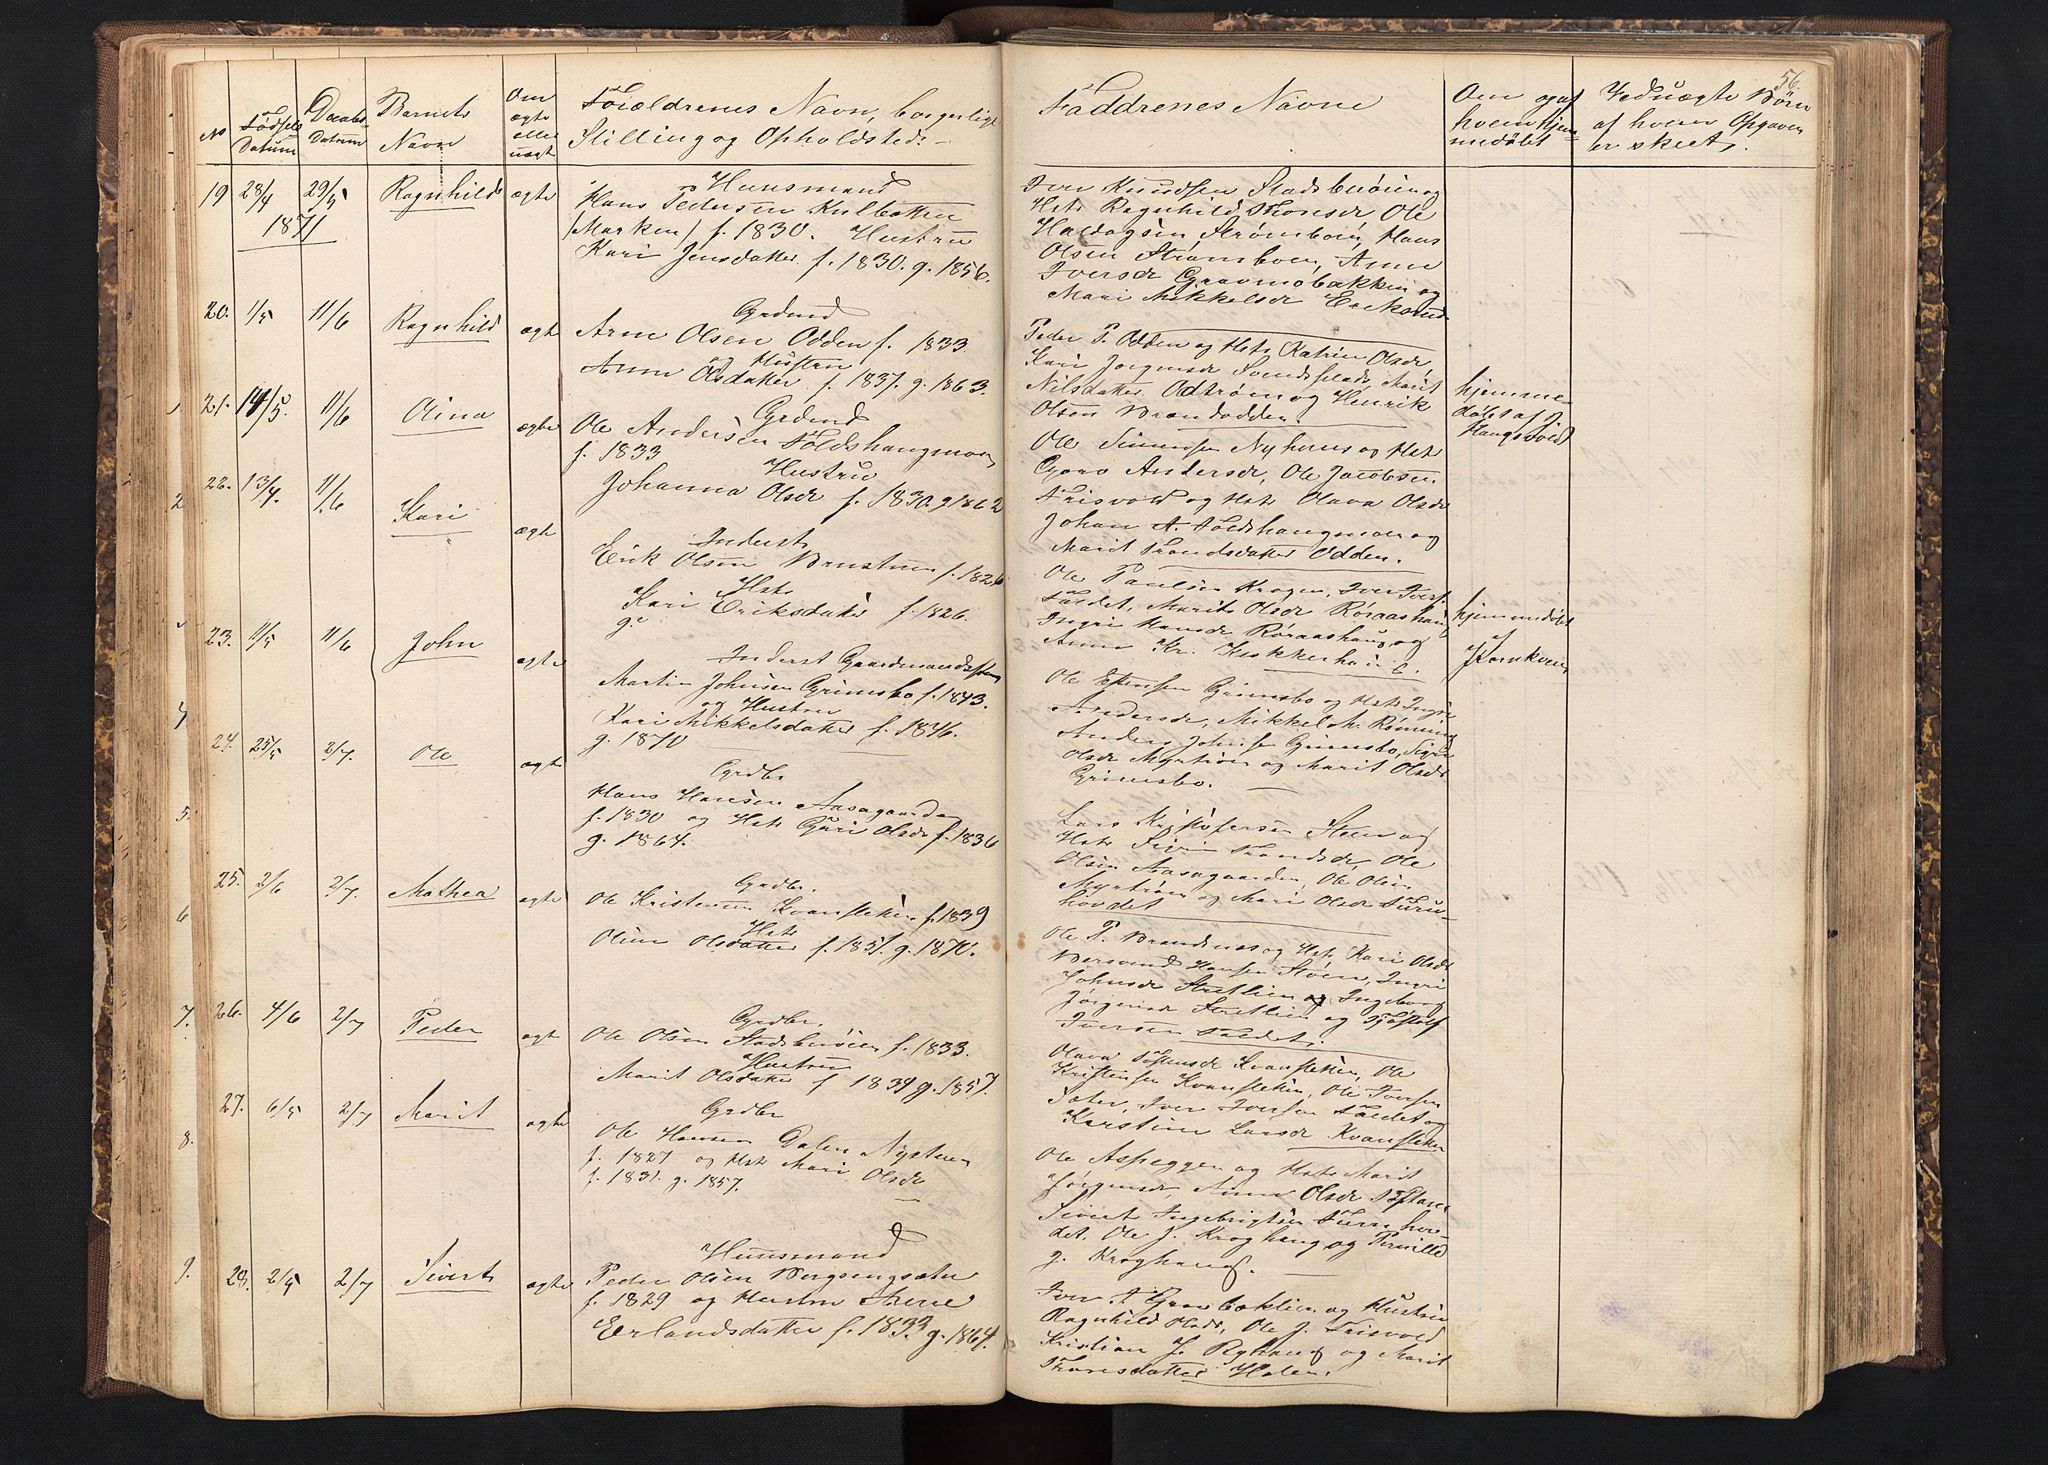 56.
No
Fødsels
Datum
Daabs
Datum
Barnets
Navn
Om
ægte
eller
uægte
Forældrenes Navn, borgerlige
Stilling og Opholdsted:
Faddrenes Navne
Om og af
hvem hjem
medøbt
Ved uægte Børn
af hvem Opgaven
er skeet.
19 28/4 29/5 Ragnhild ægte
1871
Huusmand
Hans Pedersen
(Marken) f. 1830. Hustru
Kari Jensdatter f. 1830. g. 1856.
Iver Knudsen Stadsbuøien og
Hst Ragnhild Thoresd, Ole
Haldogsen Strømbøien, Hans
Olsen Strømboen, Anne
Iversd Gravmobakken og
Mari Mikkelsd
20. 1/5 11/6 Ragnhild ægte
Grdmd
Arne Olsen Odden f. 1833
og Hustru
Anne Olsdatter f. 1837. g. 1863.
Peder P. Odden og Hst Katrine Olsd,
Kari Jørgensd Svendsplads, Marit
Nilsdatter Odtrøen og Henrik
Olsen Brandodden.
21. 14/5. 11/6 Olina ægte
Grdmd
Ole Andersen Foldshaugmoen
f. 1833 Hustru
Johanna Olsd f. 1830. g 1862
hjemme
døbt af J.
Haugsvold
Ole Simensen Nyhuus og Hst
Goro Andersd, Ole Jacobsen
Trisvold og Hst Olava Olsd
Johan A. Foldshaugmoen og
Marit Trondsdatter Odden.
22. 13/4. 11/6 Kari ægte
Inderst
Erik Olsen f. 1826
Hst
Kari Eriksdatter f. 1826.
g.
Ole Paulsen Krogen, Iver Ivers.
Foldet, Marit Olsd Røraashaug
Ingri Hansd Røraashaug og
Anne Kr. Klokkerhaug
hjemmedøbt
af
23. 11/5 11/6 John ægte
Inderst Gaardmandssøn
Martin Johnsen Grimsbo f. 1843.
og Hustru
Kari Mikkelsdatter f. 1846.
g. 1870
Ole Estensen Grimsbo og Hst Ingri
Andersd, Mikkel M. Rønning
Anders Johnsen Grimsbo, Sigri
Olsd Myrtrøen og Marit Olsd
Grimsbo.
24. 25/5 2/7. Ole ægte
Grdbr
Hans Hansen Aasagaarden
f. 1830 og Hst Guri Olsd f. 1836
g. 1864.
Lars Kristofersen Steen og
Hst Siri Trondsd, Ole
Olsen Aasagaarden, Ole Olsen
Myrtrøen og Mari Olsd Furu-
hovdet
25. 2/6 2/7. Mathea ægte
Grdbr.
Ole Kristensen Kvansletten f. 1839
Hst
Oline Olsdatter f. 1851. g. 1870.
Ole P. Brandnæs og Hst Kari Olsd
Bersvend Hansen Støen, Ingri
Johnsd Strætlien og Ingeborg
Jørgensd Strætlien og Tostolf
Iversen Foldet.
26. 4/6 2/7 Peder ægte
Grdbr.
Ole Olsen Stadsbuøien f. 1833.
Hustru
Marit Olsdatter f 1839 g. 1857.
Olava Tostensd Kvansletten, Ole
Kristensen Kvansletten, Ole Iversen
Sæter, Iver Iversen Foldet og
Karstine Larsd Kvansletten
27. 6/5 2/7 Marit ægte
Grdbr
Ole Hansen Dalen Nysteen
f. 1827 og Hst Mari Olsd
f. 1831. g. 1857.
Ole Aspeggen og Hst Marit
Jørgensd, Anne Olsd
Sivert Ingebrigtsen Furuhov-
det. Ole J. Kroghaug og Pernille
J. Kroghaug.
28. 2/5 2/7 Sivert ægte
Huusmand
Peder Olsen Bergsengsæter
f. 1829 og Hustru Anne
Erlandsdatter f. 1833 g. 1864.
Iver A Gravbæklien og Hustru
Ragnhild Olsd, Ole J. Trisvold
Kristian J. Ryhaug og Marit
Thoresdatter Holen.
2
4
5.
6
7.
8.
9.